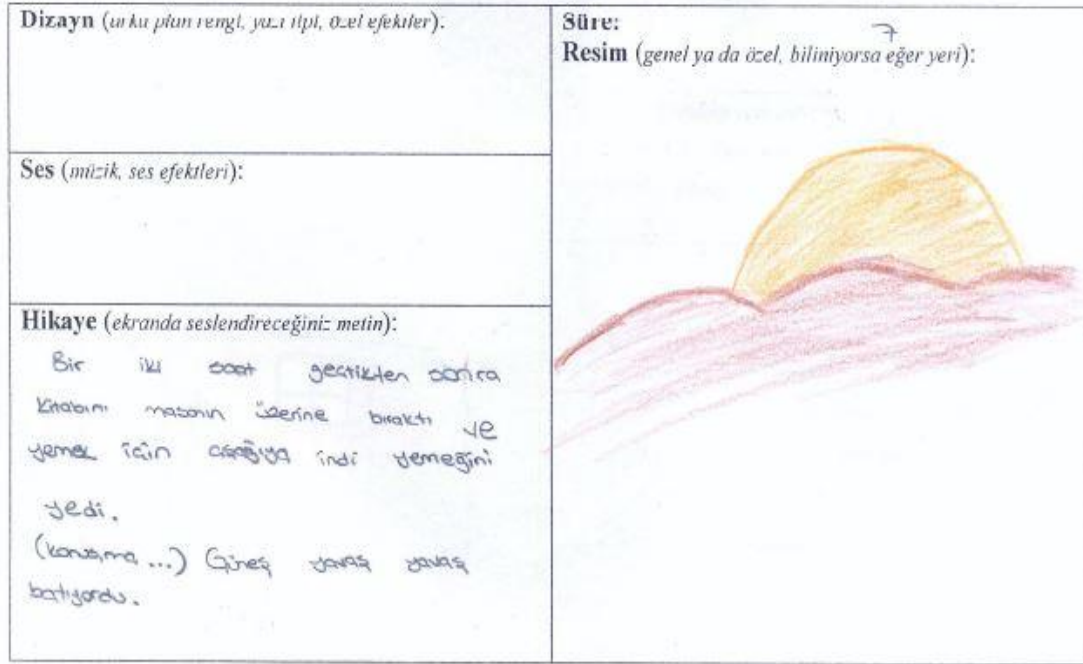 Dizayn (arka plan rengi, yazı tipi, özel efektler):
Ses (müzik, ses efektleri):
Hikaye (ekranda seslendireceğiniz metin):
Bir iki saat geçtikten sonra
kitabını masanın üzerine bıraktı ve
yemek için aşağıya indi yemeğini
yedi.
(konuşma ...) Güneş yavaş yavaş
batıyordu.
Süre:
7
Resim (genel ya da özel, biliniyorsa eğer yeri):